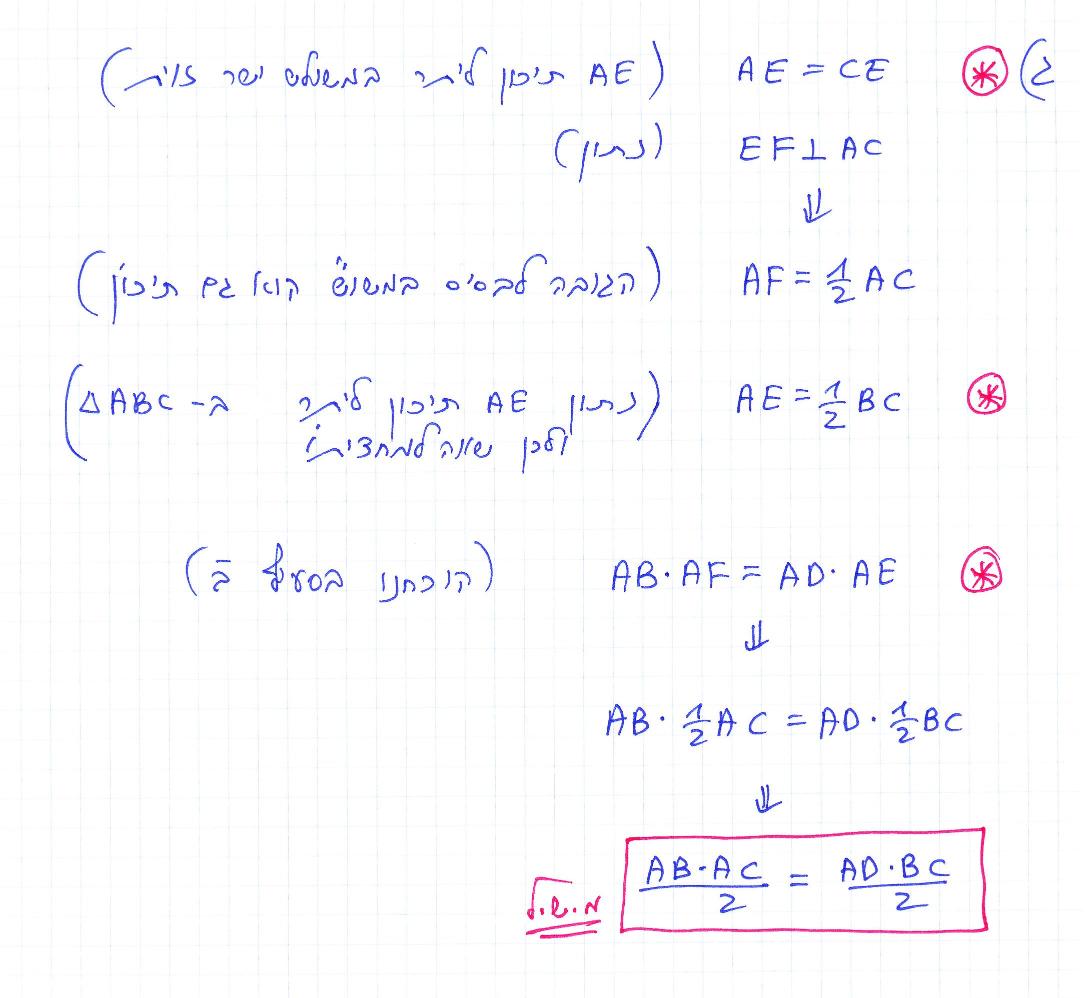 ג) ⊛ AE = CE (AE תיכון ליתר במשולש ישר זוית)
EF ⊥ AC (נתון)
⇓
AF = ½ AC (הגובה לבסיס במשו"ש הוא גם תיכון)
⊛ AE = ½ BC (נתון AE תיכון ליתר ב- ΔABC
ולכן שווה למחציתו)
⊛ AB · AF = AD · AE (הוכחנו בסעיף ב)
⇓
AB · ½ AC = AD · ½ BC
⇓
AB·AC/2 = AD·BC/2 מ.ש.ל